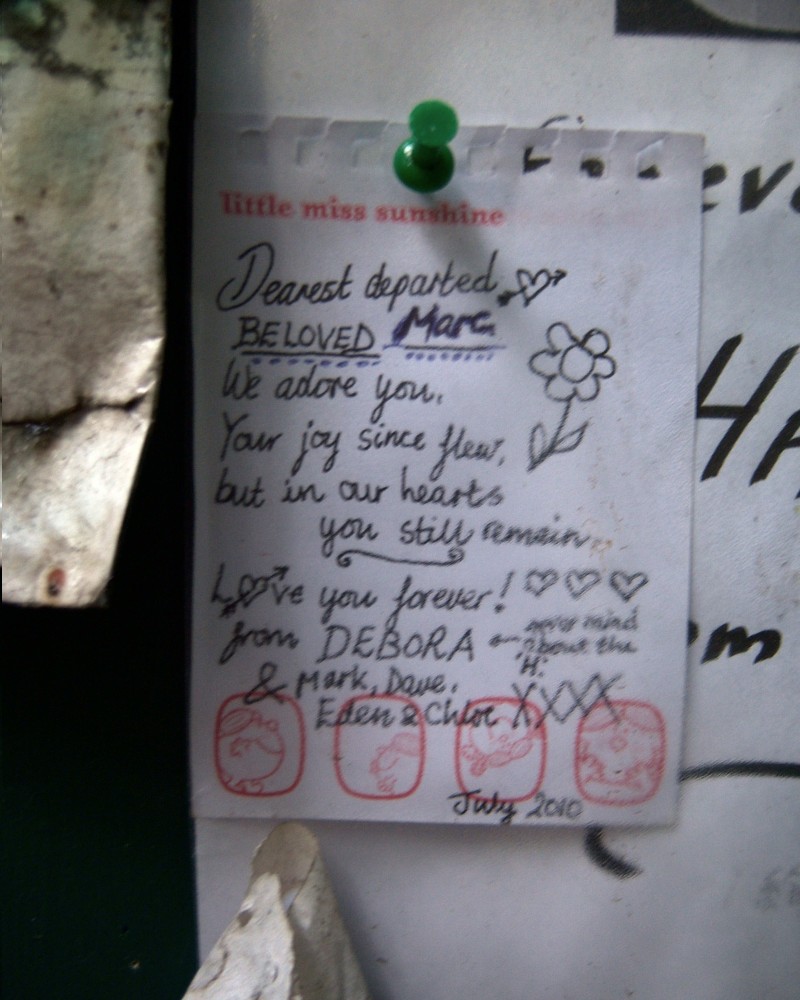 little miss sunshine
Dearest departed
BELOVED Marc
We adore you.
Your joy since flew,
but in our hearts
you still remain.
Love you forever!
from DEBORA ← never mind
about the
'H'.
& Mark, Dave,
Eden & Chloe XXXX
July 2010